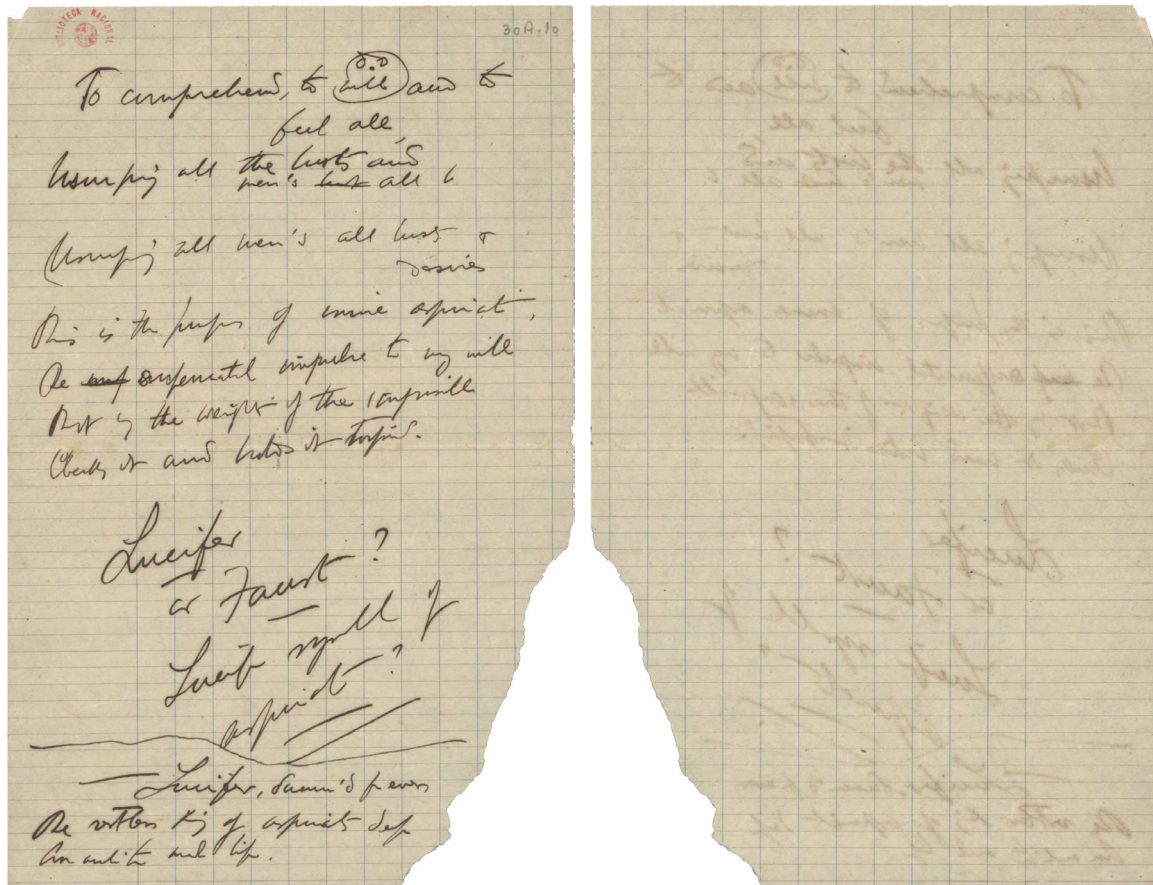 BIBLIOTECA NACIONAL
30A-10
To comprehend, to will and to
feel all,
Usurping all the lusts and
men's lust all
(Usurping all men's all lust &
desires
This is the purpose of mine aspirat.
The impulse to my will
But by the weight of the impossible
Checks it and holds it torpid.
Lucifer
or Faust?
Lucifer symbol of
aspirat?
Lucifer, damn'd for ever
The restless King of aspirat deep
and life.